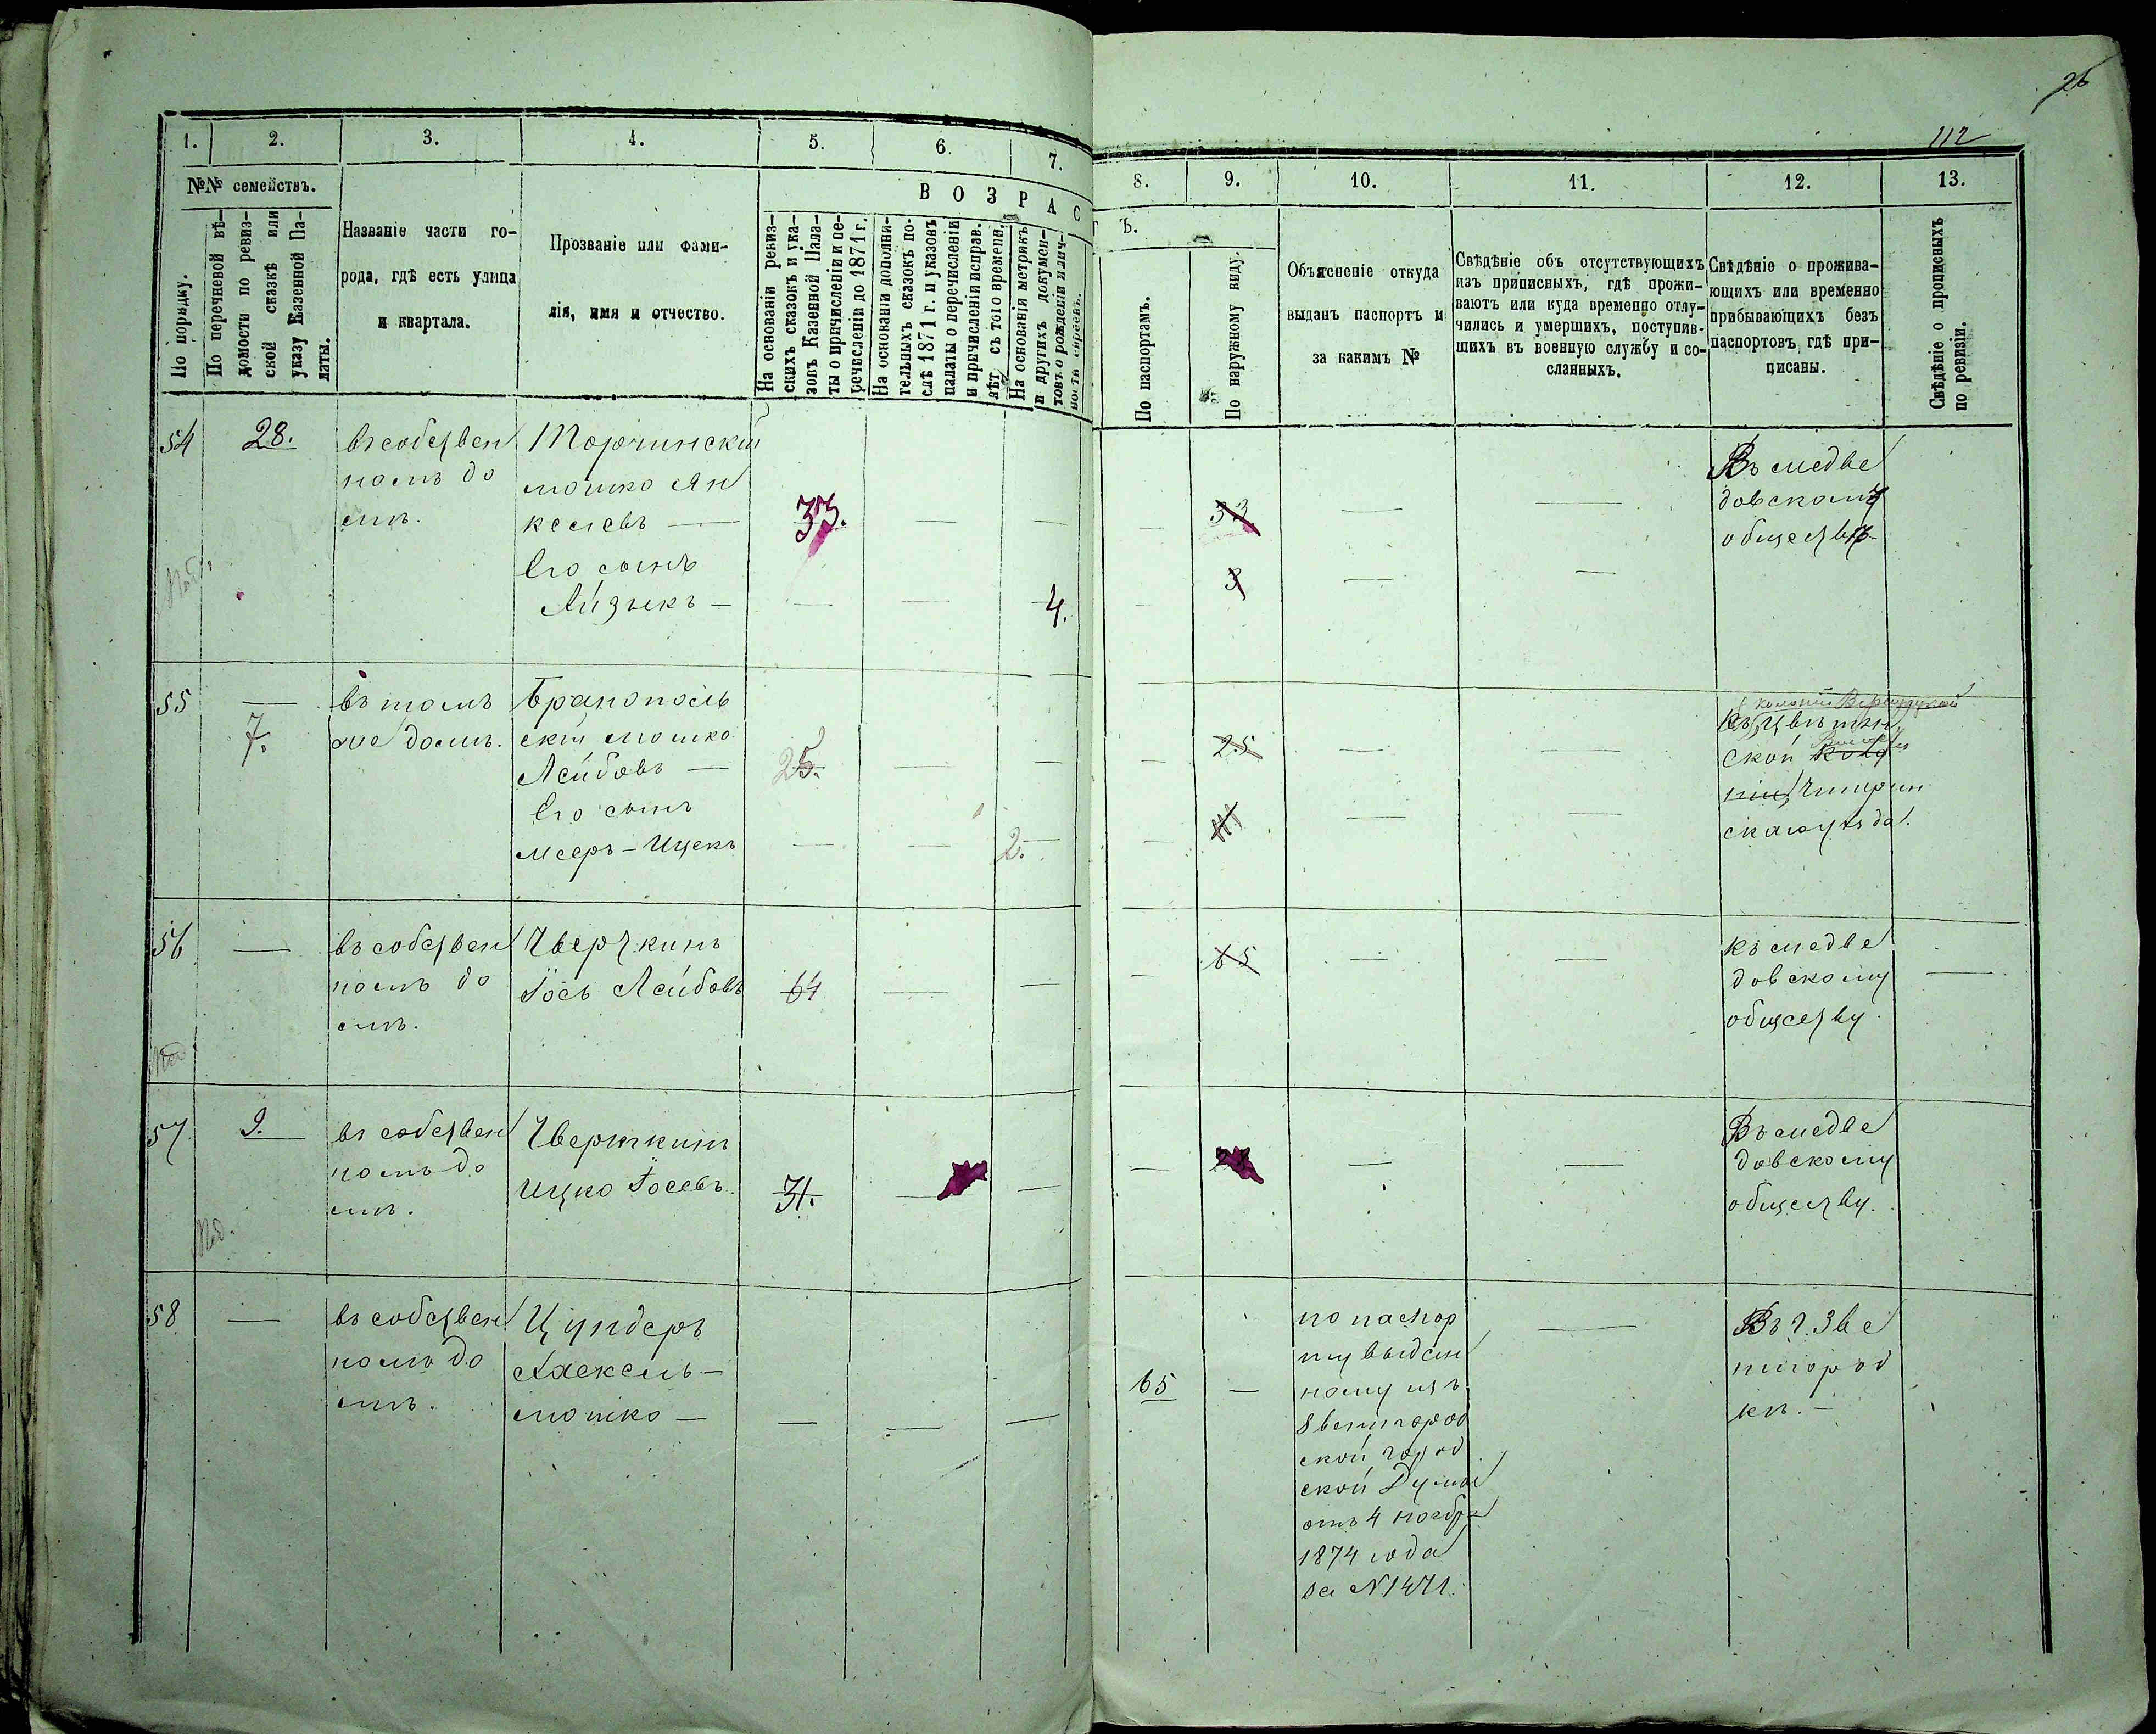 26
112
1. 2. 3. 4. 5. 6. 7. 8. 9. 10. 11. 12. 13.
№№ семействъ.
По порядку.
По перечневой вѣ-
домости по ревиз-
ской сказкѣ или
указу Казенной Па-
латы.
Названіе части го-
рода, гдѣ есть улица
и квартала.
Прозваніе или фами-
лія, имя и отчество.
ВОЗРАСТЪ.
На основаніи ревиз-
скихъ сказокъ и ука-
зовъ Казенной Пала-
ты о причисленіи и пе-
речисленіи до 1871 г.
На основаніи дополни-
тельныхъ сказокъ по-
слѣ 1871 г. и указовъ
палаты о перечисленіи
и причисленіи исправ.
лѣт съ того времени.
На основаніи метрикъ
и других докумен-
товъ о рожденіи и лич-
ности евреевъ.
По паспортамъ.
По наружному виду.
Объясненіе откуда
выданъ паспортъ и
за какимъ №
Свѣдѣніе объ отсутствующихъ
изъ приписныхъ, гдѣ прожи-
ваютъ или куда временно отлу-
чились и умершихъ, поступив-
шихъ въ военную службу и со-
сланныхъ.
Свѣдѣніе о прожива-
ющихъ или временно
прибывающихъ безъ
паспортовъ, гдѣ при-
писаны.
Свѣдѣніе о прописныхъ
по ревизіи.
54 28. въ собствен
номъ до
мѣ.
Торчинскій
Мошко Ян
келевъ — 33. — — — 33 — —
Его сынъ
Айзыкъ — — — 4. — 3 — —
Въ медве
довскому
обществ
55 — 7. въ томъ
же домѣ.
Бранополь
скій Мошко
Лейбовъ — 25. — — — 25 — —
Его сынъ
Мееръ-Ицекъ — — 2. — — —
Къ Цвѣтни
ской
Чигирин
ска уѣзда.
56 — въ собствен
номъ до
мѣ.
Чверткинъ
Іось Лейбовъ 64 — — — 65 — —
къ медве
довскому
обществу. —
57 9. въ собствен
номъ до
мѣ.
Чверткинъ
Ицко Іосевъ 31. — — — — —
Въ медве
довскому
обществу.
Мед.
58 — въ собствен
номъ до
мѣ.
Цундеръ
Хаскель —
Мошко — — — — 65 —
по паспор
ту выдан
ному изъ
Звенигород
ской город
ской Думы
отъ 4 ноября
1874 года
за N 1471.
—
Въ г. Зве
нигород
кѣ. —